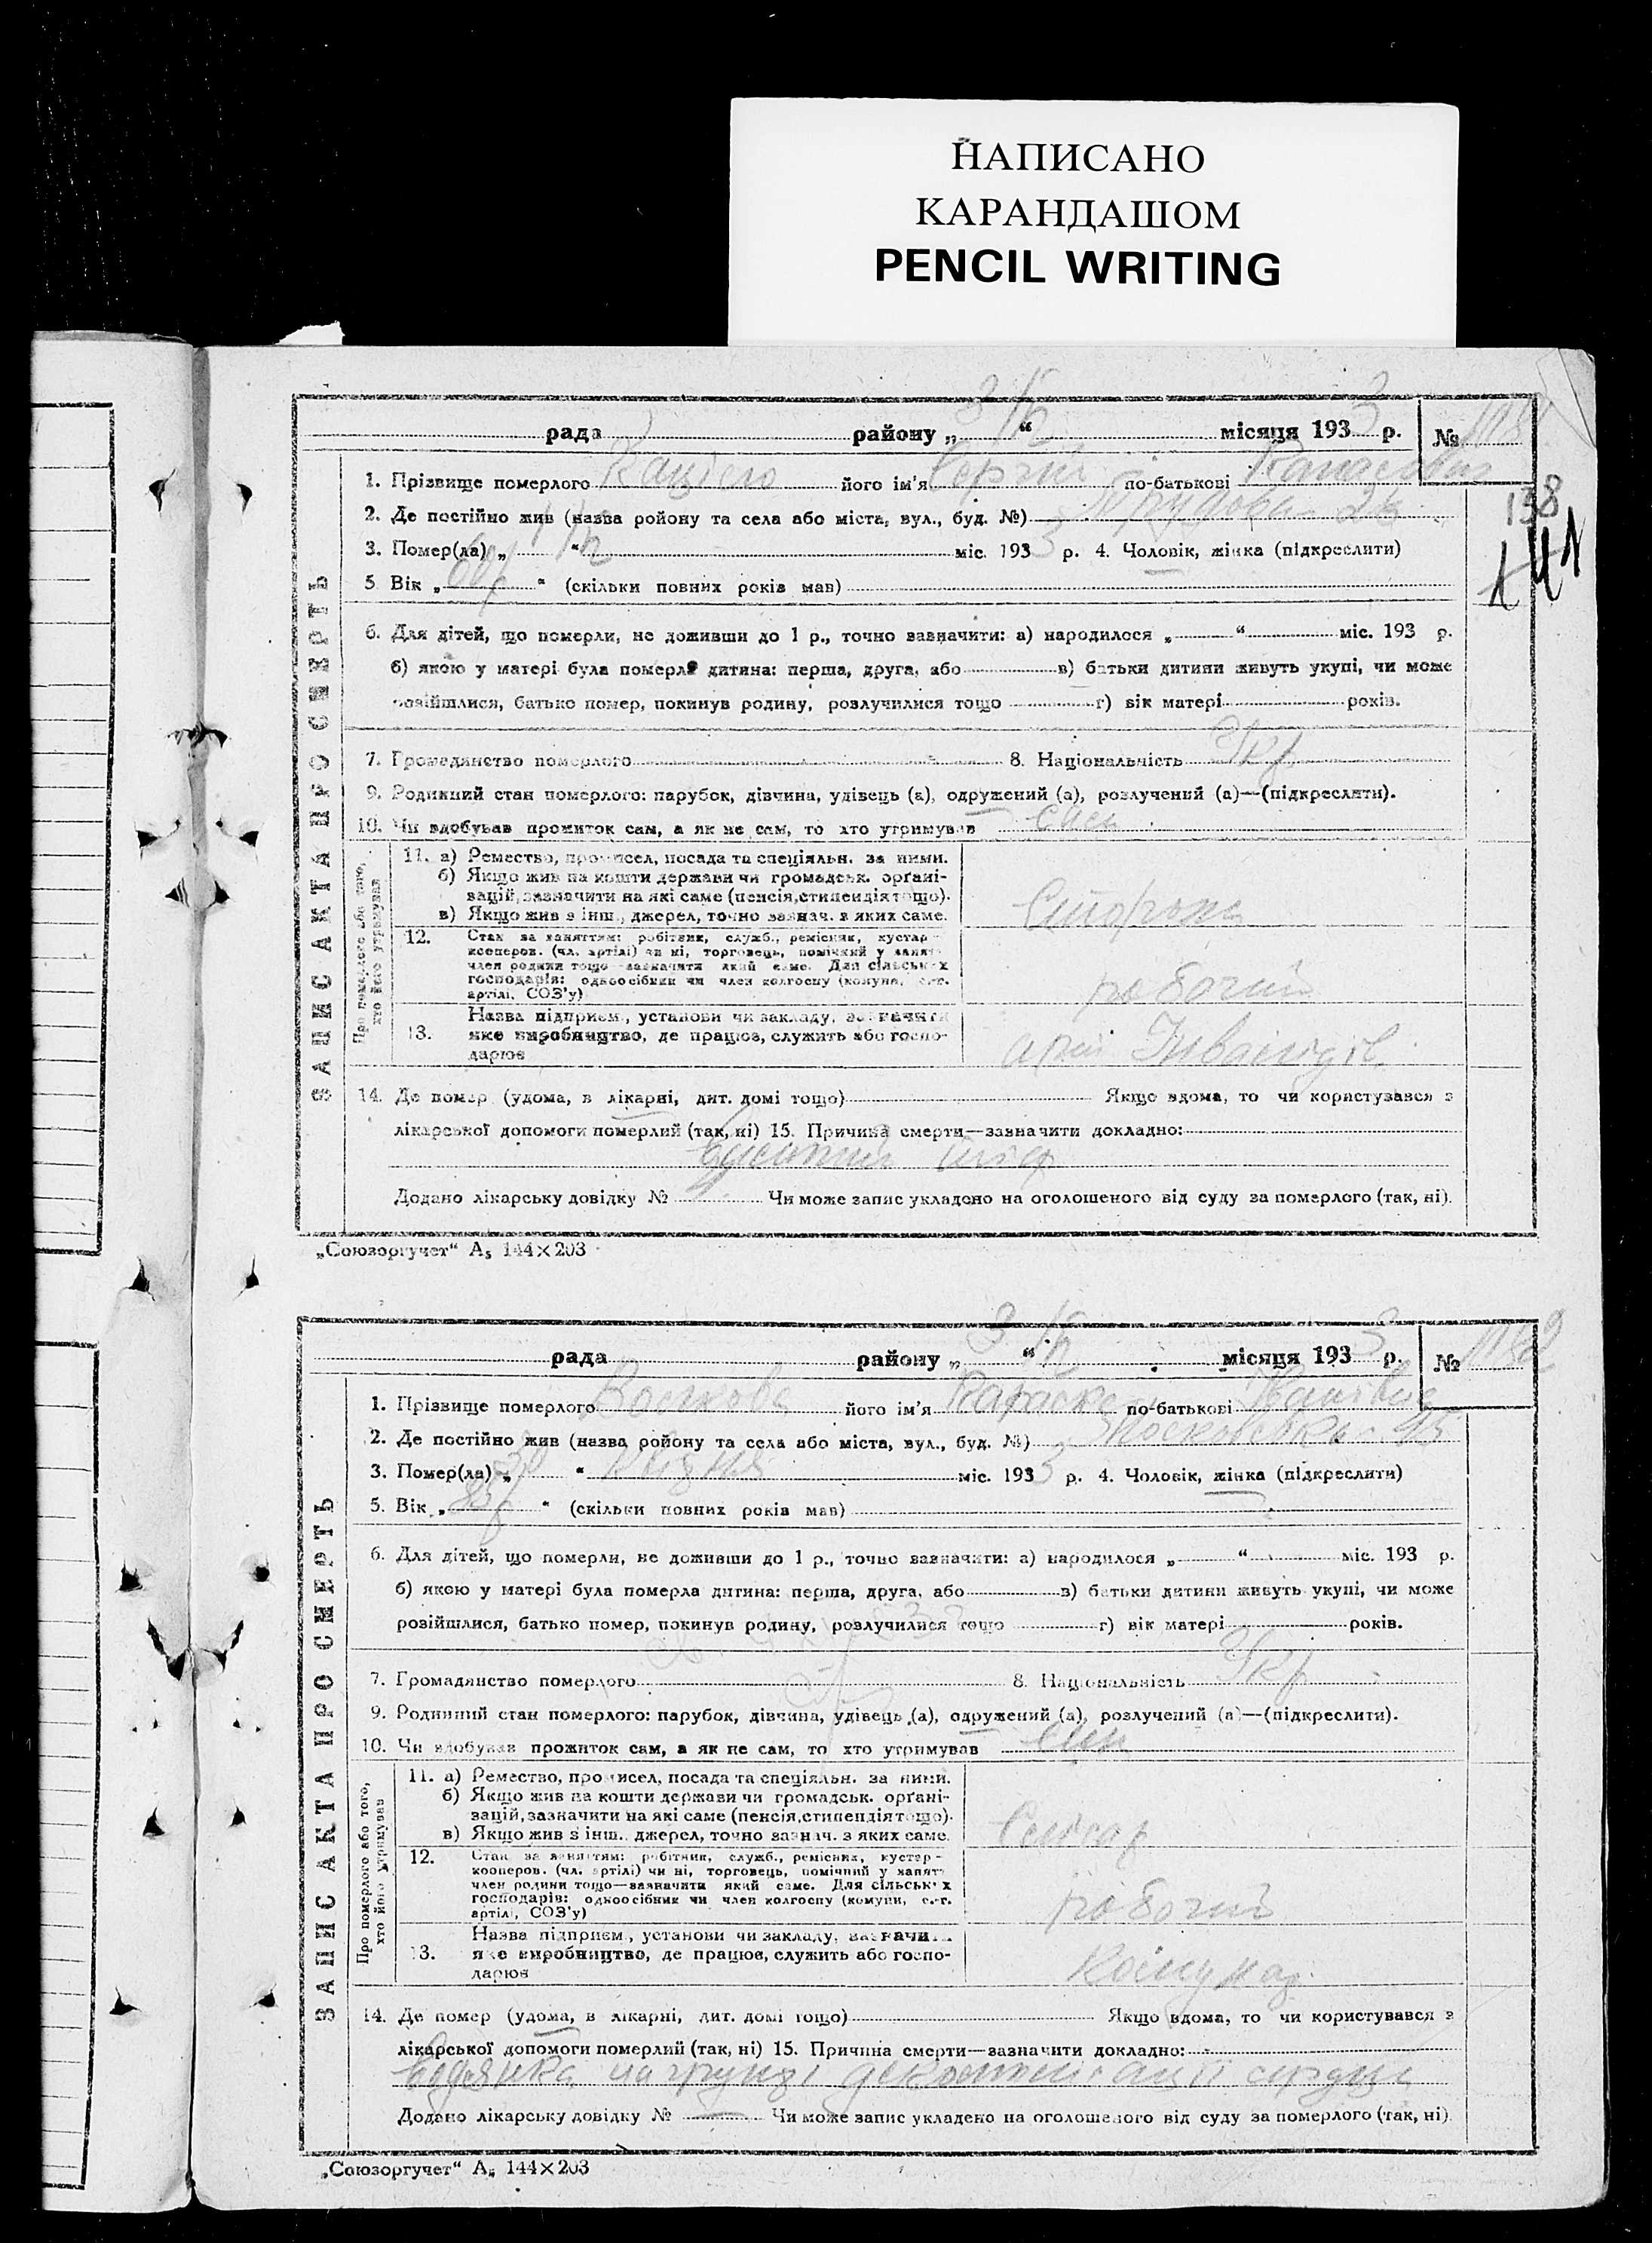 НАПИСАНО
КАРАНДАШОМ
PENCIL WRITING
рада району „ 3 “ місяця 193 3 р. №
138
ЗАПИС АКТА ПРО СМЕРТЬ
1. Прізвище померлого його ім'я Сергій по-батькові
2. Де постійно жив (назва ройону та села або міста, вул., буд. №)
3. Помер(ла) „ “ міс. 193 3 р. 4. Чоловік, жінка (підкреслити)
5 Вік „ “ (скільки повних років мав)
6. Для дітей, що померли, не доживши до 1 р., точно зазначити: а) народилося „ “ міс. 193 р.
б) якою у матері була померла дитина: перша, друга, або в) батьки дитини живуть укупі, чи може
розійшлися, батько помер, покинув родину, розлучилися тощо г) вік матері років.
7. Громадянство померлого 8. Національність Укр
9. Родинний стан померлого: парубок, дівчина, удівець (а), одружений (а), розлучений (а)—(підкреслити).
10. Чи здобував прожиток сам, а як не сам, то хто утримував
Про померлого або того, хто його утримував
11. а) Ремество, промисел, посада та спеціяльн. за ними.
б) Якщо жив на кошти держави чи громадськ. орґані-
зацій, зазначити на які саме (пенсія, стипендія тощо).
в) Якщо жив з інш., джерел, точно зазнач. з яких саме.
Сторож
12. Стан за заняттям: робітник, служб., ремісник, кустар-
кооперов. (чл. артілі) чи ні, торговець, помічний у занятт
член родини тощо—зазначити який саме. Для сільськ х
господарів: одноосібник чи член колгоспу (комуни, с.-г.
артілі, СОЗ'у)
робочий
13. Назва підприєм., установи чи закладу, зазначити
яке виробництво, де працює, служить або госпо-
дарює
14. Де помер (удома, в лікарні, дит. домі тощо) Якщо вдома, то чи користувався з
лікарської допомоги померлий (так, ні) 15. Причина смерти—зазначити докладно:
Додано лікарську довідку № Чи може запис укладено на оголошеного від суду за померлого (так, ні).
„Союзоргучет“ А5 144×203
рада району „ 3 “ місяця 193 3 р. №
ЗАПИС АКТА ПРО СМЕРТЬ
1. Прізвище померлого його ім'я по-батькові
2. Де постійно жив (назва ройону та села або міста, вул., буд. №) Московська 45
3. Помер(ла) „ “ міс. 193 3 р. 4. Чоловік, жінка (підкреслити)
5. Вік „ “ (скільки повних років мав)
6. Для дітей, що померли, не доживши до 1 р., точно зазначити: а) народилося „ “ міс. 193 р.
б) якою у матері була померла дитина: перша, друга, або в) батьки дитини живуть укупі, чи може
розійшлися, батько помер, покинув родину, розлучилися тощо г) вік матері років.
7. Громадянство померлого 8. Національність Укр
9. Родинний стан померлого: парубок, дівчина, удівець (а), одружений (а), розлучений (а)—(підкреслити).
10. Чи здобував прожиток сам, а як не сам, то хто утримував син
Про померлого або того, хто його утримував
11. а) Ремество, промисел, посада та спеціяльн. за ними.
б) Якщо жив на кошти держави чи громадськ. орґані-
зацій, зазначити на які саме (пенсія, стипендія тощо).
в) Якщо жив з інш., джерел, точно зазнач. з яких саме.
12. Стан за заняттям: робітник, служб., ремісник, кустар-
кооперов. (чл. артілі) чи ні, торговець, помічний у занятт
член родини тощо—зазначити який саме. Для сільськ х
господарів: одноосібник чи член колгоспу (комуни, с.-г.
артілі, СОЗ'у)
робочий
13. Назва підприєм., установи чи закладу, зазначити
яке виробництво, де працює, служить або госпо-
дарює
14. Де помер (удома, в лікарні, дит. домі тощо) Якщо вдома, то чи користувався з
лікарської допомоги померлий (так, ні) 15. Причина смерти—зазначити докладно:
водянка на грунті декомпенсації серця
Додано лікарську довідку № Чи може запис укладено на оголошеного від суду за померлого (так, ні).
„Союзоргучет“ А5 144×203